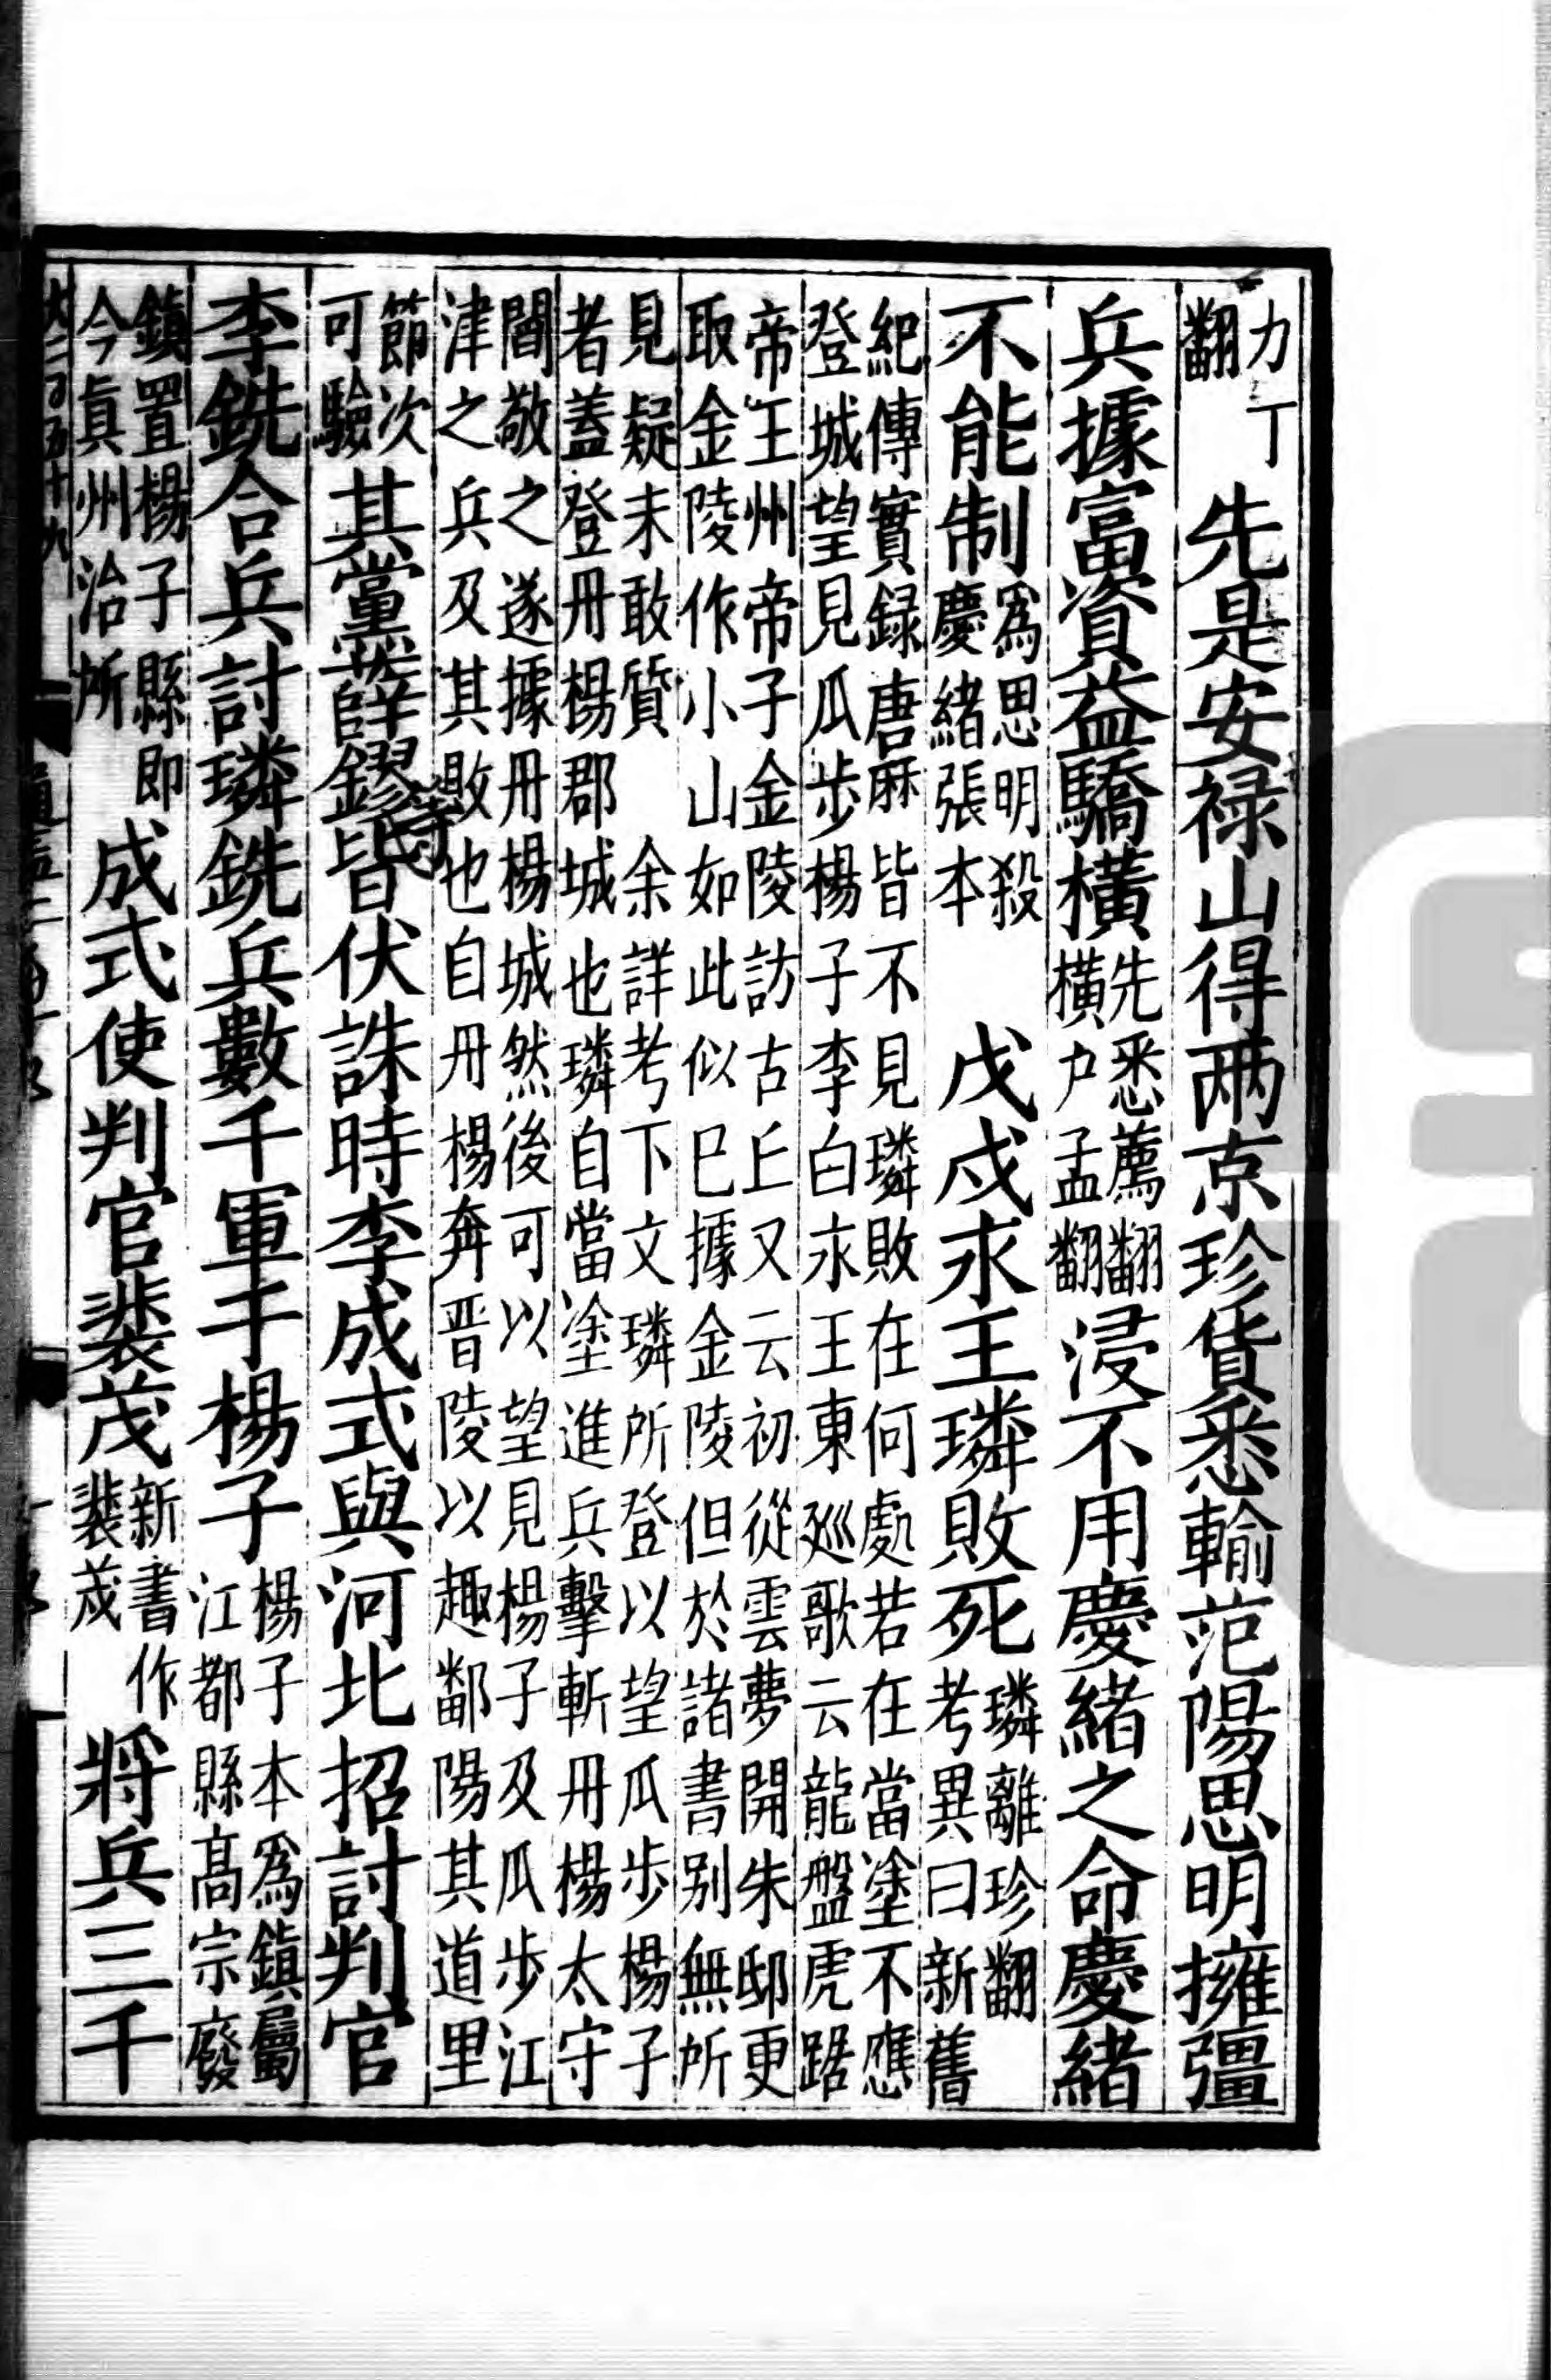 力丁翻先是安禄山得兩京珍貨悉輸范陽思明擁彊
兵據富資益驕橫先悉薦翻橫戶孟翻浸不用慶緒之命慶緒
不能制爲思明殺慶緒張本戊戌永王璘敗死璘離珍翻考異曰新舊
紀傳實録唐曆皆不見璘敗在何處若在當塗不應
登城望見瓜步楊子李白永王東廵歌云龍盤虎踞
帝王州帝子金陵訪古丘又云初從雲夢開朱邸更
取金陵作小山如此似已據金陵但於諸書别無所
見疑未敢質余詳考下文璘所登以望瓜步楊子
者蓋登丹楊郡城也璘自當塗進兵擊斬丹楊太守
閻敬之遂據丹楊城然後可以望見楊子及瓜步江
津之兵及其敗也自丹楊奔晋陵以趣鄱陽其道里
節次可驗其黨薛鏐等皆伏誅時李成式與河北招討判官
李銑合兵討璘銑兵數千軍于楊子楊子本爲鎮屬江都縣高宗廢
鎮置楊子縣即今眞州治所成式使判官裴茂新書作裴茂將兵三千